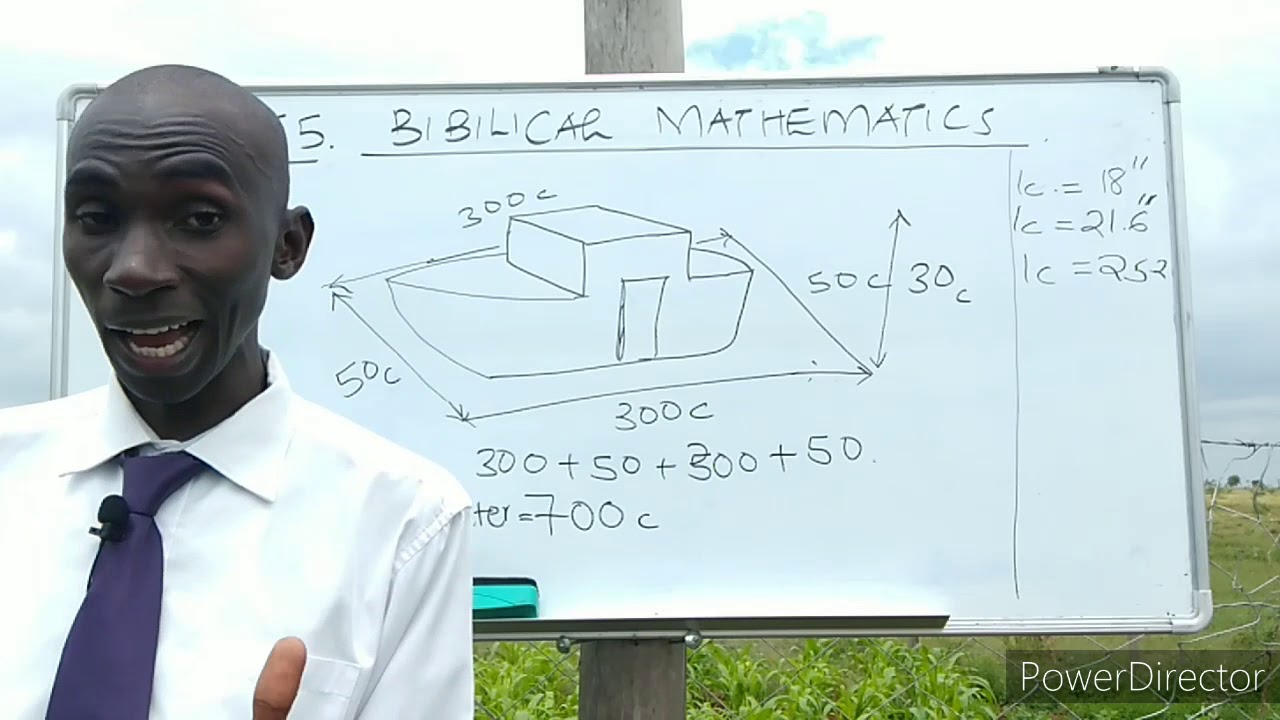 5. BIBILICAL MATHEMATICS
1c = 18"
1c = 21.6"
1c = 252
300c
50c
30c
50c
300c
300 + 50 + 300 + 50.
ter = 700c
PowerDirector